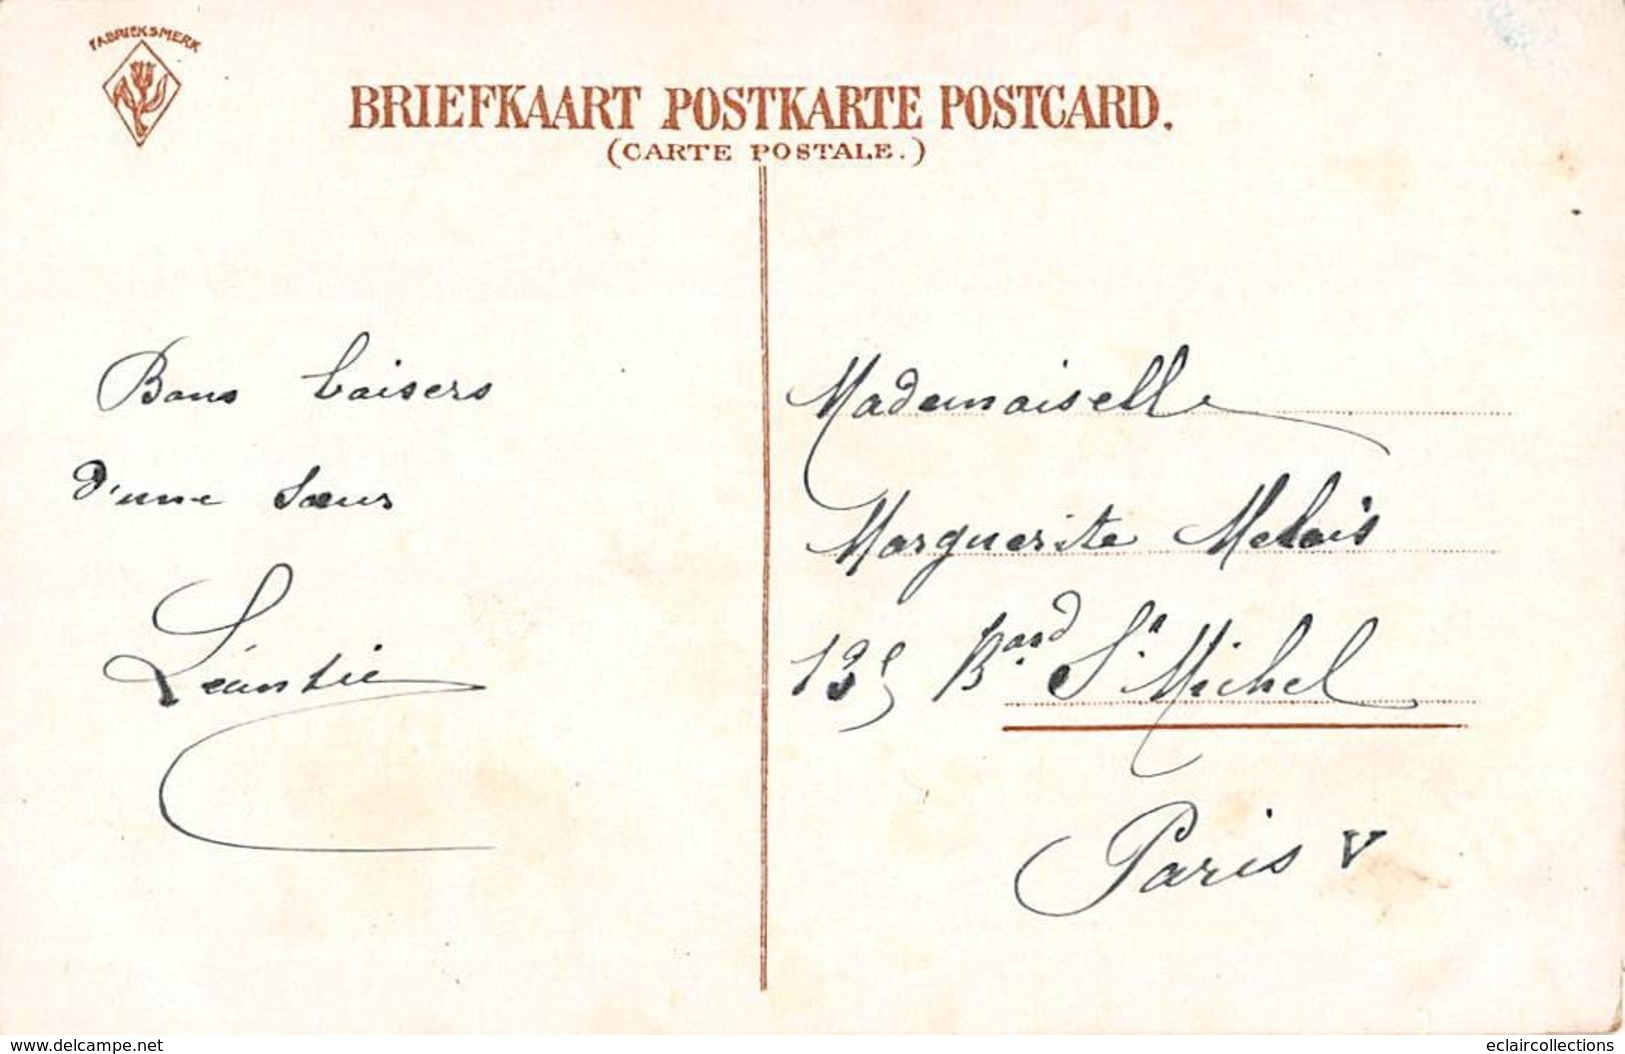 FABRIEKSMERK
BRIEFKAART POSTKARTE POSTCARD.
(CARTE POSTALE.)
Bons baisers
d'une sœur
Léontie
Mademoiselle
Marguerite
135 Bard St Michel
Paris V
www.delcampe.net
eclaircollections